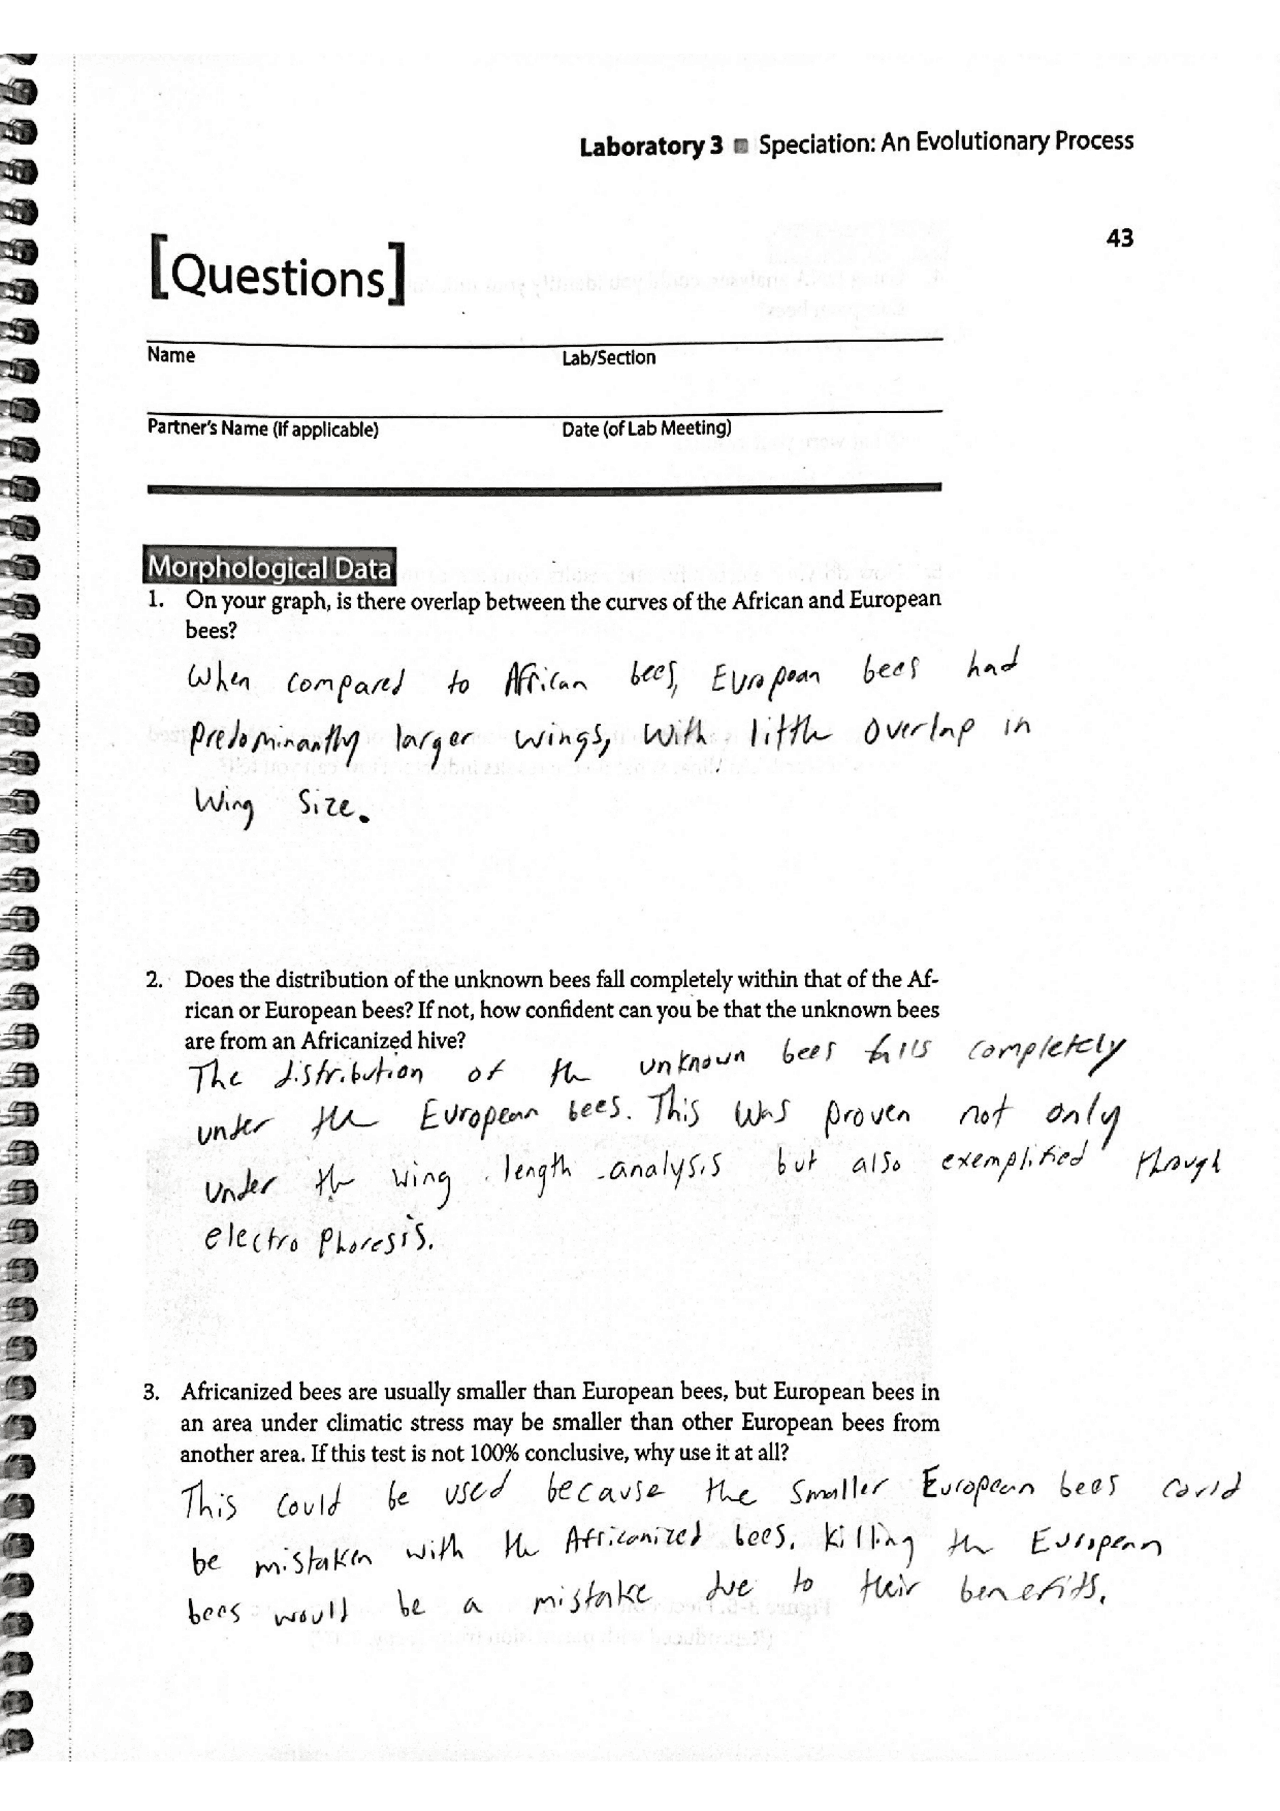 Laboratory 3 ■ Speciation: An Evolutionary Process
43
[Questions]
Name Lab/Section
Partner's Name (if applicable) Date (of Lab Meeting)
Morphological Data
1. On your graph, is there overlap between the curves of the African and European
bees?
When compared to African bees, European bees had
predominantly larger wings, with little overlap in
wing size.
2. Does the distribution of the unknown bees fall completely within that of the Af-
rican or European bees? If not, how confident can you be that the unknown bees
are from an Africanized hive?
The distribution of the unknown bees falls completely
under the European bees. This was proven not only
under the wing length analysis but also exemplified though
electrophoresis.
3. Africanized bees are usually smaller than European bees, but European bees in
an area under climatic stress may be smaller than other European bees from
another area. If this test is not 100% conclusive, why use it at all?
This could be used because the smaller European bees could
be mistaken with the Africanized bees. Killing the European
bees would be a mistake due to their benefits.